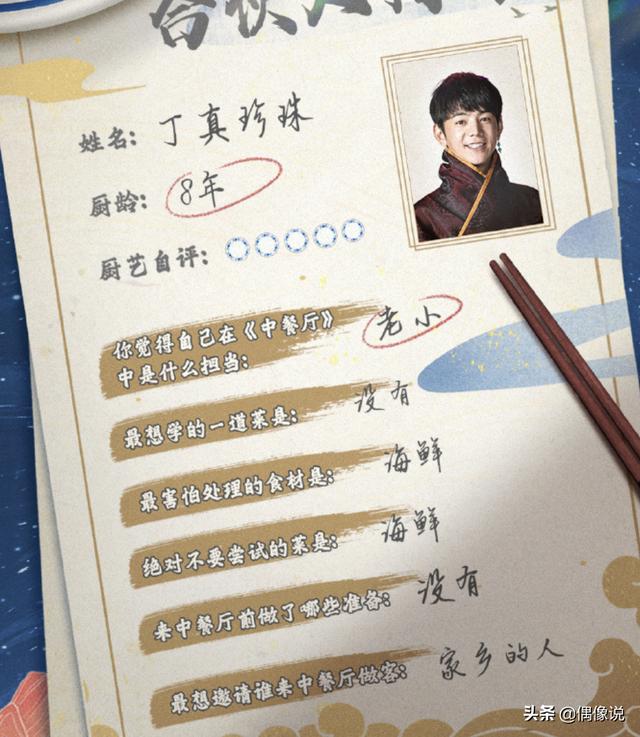 合伙人
姓名: 丁真珍珠
厨龄: 8年
厨艺自评:
你觉得自己在《中餐厅》
中是什么担当: 老小
最想学的一道菜是: 没有
最害怕处理的食材是: 海鲜
绝对不要尝试的菜是: 海鲜
来中餐厅前做了哪些准备: 没有
最想邀请谁来中餐厅做客: 家乡的人
头条 @偶像说